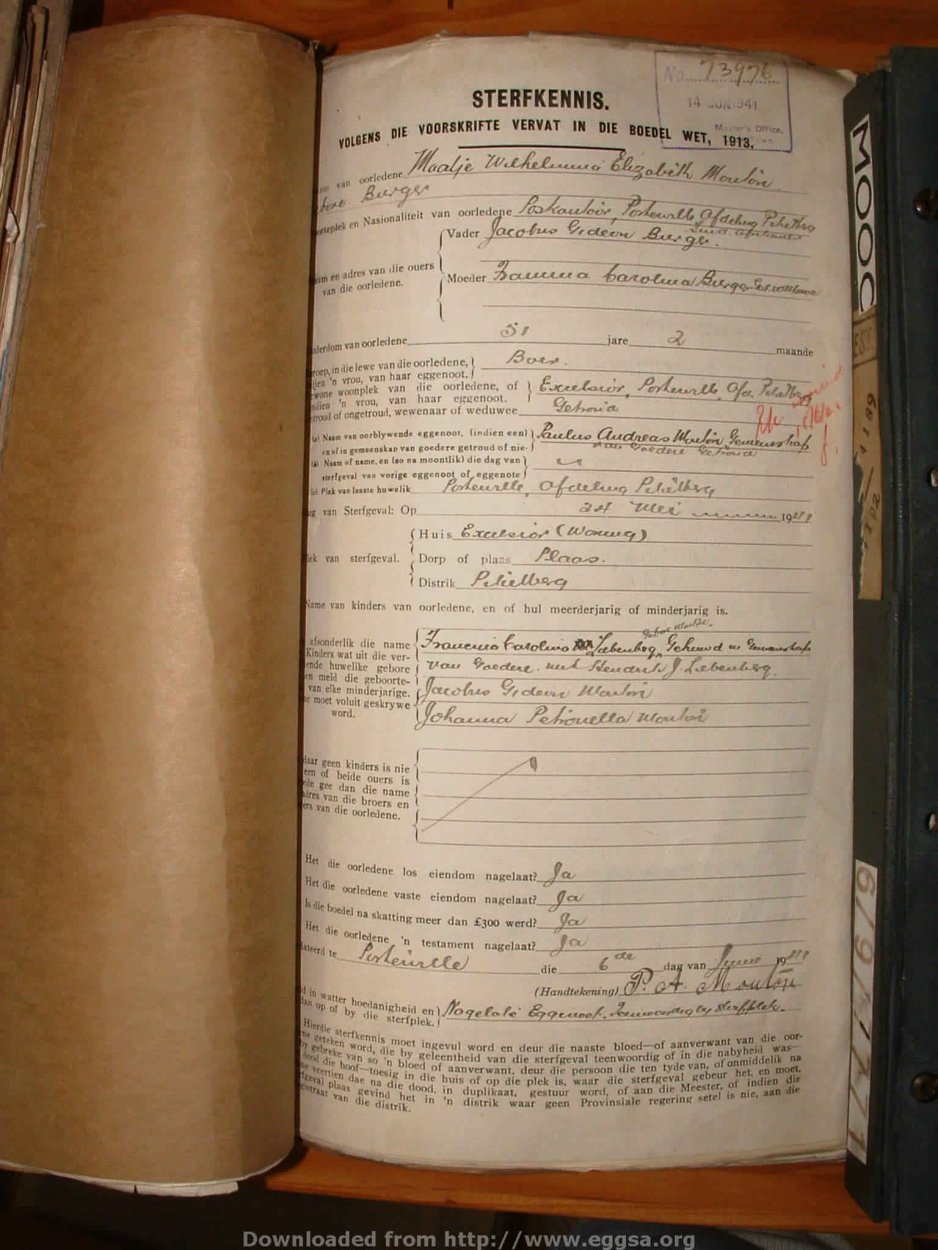 No. 73976
14 JUN 1941
Master's Office.
STERFKENNIS.
VOLGENS DIE VOORSKRIFTE VERVAT IN DIE BOEDEL WET, 1913.
van oorledene Maatje Wilhelmina Elizabeth Mouton
Burger
en Nasionaliteit van oorledene Poskantoor, Porterville Afdeling Piketberg
Suid Afrikaans
Vader Jacobus Gideon Burger.
en adres van die ouers
van die oorledene.
Moeder Francina Carolina Burger
van oorledene 51 jare 2 maande
in die lewe van die oorledene,
'n vrou, van haar eggenoot. Boer.
woonplek van die oorledene, of
'n vrou, van haar eggenoot. Excelsior, Porterville, Afd. Piketberg
of ongetroud, wewenaar of weduwee Getroud
(a) Naam van oorblywende eggenoot, (indien een)
en of in gemeenskap van goedere getroud of nie. Paulus Andreas Mouton Gemeenskap
van Goedere Getroud
Naam of name, en (so na moontlik) die dag van
sterfgeval van vorige eggenoot of eggenote
Plek van laaste huwelik Porterville, Afdeling Piketberg
van Sterfgeval: Op 24 Mei 1941
Huis Excelsior (Woning)
van sterfgeval. Dorp of plaas Plaas.
Distrik Piketberg
Name van kinders van oorledene, en of hul meerderjarig of minderjarig is.
gebore Mouton.
afsonderlik die name Francina Carolina Liebenberg, Getroud in Gemeenskap
Kinders wat uit die ver-
huwelike gebore van Goedere met Hendrik J. Liebenberg.
en meld die geboorte-
van elke minderjarige. Jacobus Gideon Mouton
moet voluit geskrywe
word. Johanna Petronella Mouton
daar geen kinders is nie
een of beide ouers is
gee dan die name
van die broers en
van die oorledene.
Het die oorledene los eiendom nagelaat? Ja
Het die oorledene vaste eiendom nagelaat? Ja
Is die boedel na skatting meer dan £300 werd? Ja
Het die oorledene 'n testament nagelaat? Ja
te Porterville die 6de dag van Junie 1941
(Handtekening) P. A. Mouton
in watter hoedanigheid en
op of by die sterfplek. Nagelate Eggenoot. Teenwoordig by sterfplek.
Hierdie sterfkennis moet ingevul word en deur die naaste bloed—of aanverwant van die oor-
geteken word, die by geleentheid van die sterfgeval teenwoordig of in die nabyheid was—
gebreke van so 'n bloed of aanverwant, deur die persoon die ten tyde van, of onmiddelik na
dood die hoof—toesig in die huis of op die plek is, waar die sterfgeval gebeur het, en moet,
veertien dae na die dood, in duplikaat, gestuur word, of aan die Meester, of indien die
plaas gevind het in 'n distrik waar geen Provinsiale regering setel is nie, aan die
van die distrik.
MOOC
6/9/7771
Downloaded from http://www.eggsa.org